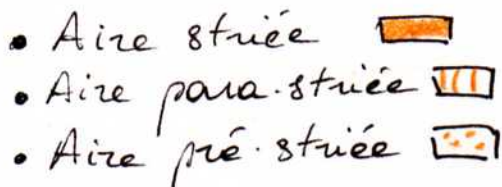 • Aire striée
• Aire para-striée
• Aire pré-striée